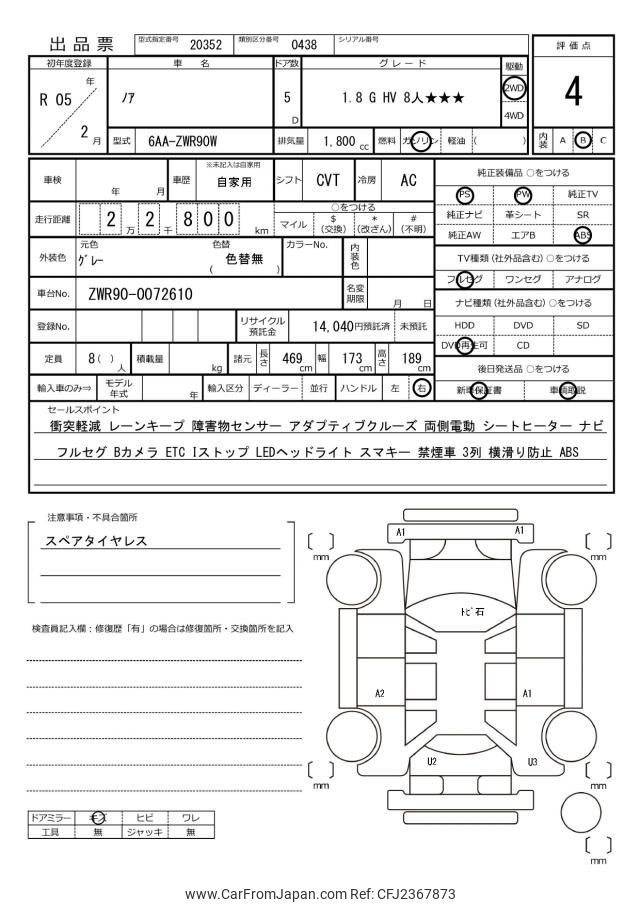 出品票 型式指定番号 20352 類別区分番号 0438 シリアル番号
評価点
4
内装 A B C
初年度登録 車名 ドア数 グレード 駆動
R 05 年 2 月 ノア 5 D 1.8 G HV 8人★★★ 2WD 4WD
型式 6AA-ZWR90W 排気量 1,800 cc 燃料 ガソリン 軽油 ( )
車検 年 月 車歴 ※未記入は自家用 自家用 シフト CVT 冷房 AC
走行距離 2 万 2 千 8 0 0 km ○をつける
マイル $ (交換) * (改ざん) # (不明)
外装色 元色 グレー 色替 ( 色替無 ) カラーNo. 内装色
車台No. ZWR90-0072610 名変期限 月 日
登録No. リサイクル預託金 14,040円預託済 未預託
定員 8( )人 積載量 kg 諸元 長さ 469cm 幅 173cm 高さ 189cm
輸入車のみ⇒ モデル年式 年 輸入区分 ディーラー 並行 ハンドル 左 右
純正装備品 ○をつける
PS PW 純正TV
純正ナビ 革シート SR
純正AW エアB ABS
TV種類 (社外品含む) ○をつける
フルセグ ワンセグ アナログ
ナビ種類 (社外品含む) ○をつける
HDD DVD SD
DVD再生可 CD
後日発送品 ○をつける
新車保証書 車輌取説
セールスポイント
衝突軽減 レーンキープ 障害物センサー アダプティブクルーズ 両側電動 シートヒーター ナビ
フルセグ Bカメラ ETC Iストップ LEDヘッドライト スマキー 禁煙車 3列 横滑り防止 ABS
注意事項・不具合箇所
スペアタイヤレス
検査員記入欄：修復歴「有」の場合は修復箇所・交換箇所を記入
A1 A1
[ ] mm [ ] mm
トビ石
A2 A1
U2 U3
[ ] mm [ ] mm
[ ] mm
ドアミラー キズ ヒビ ワレ
工具 無 ジャッキ 無
www.CarFromJapan.com Ref: CFJ2367873